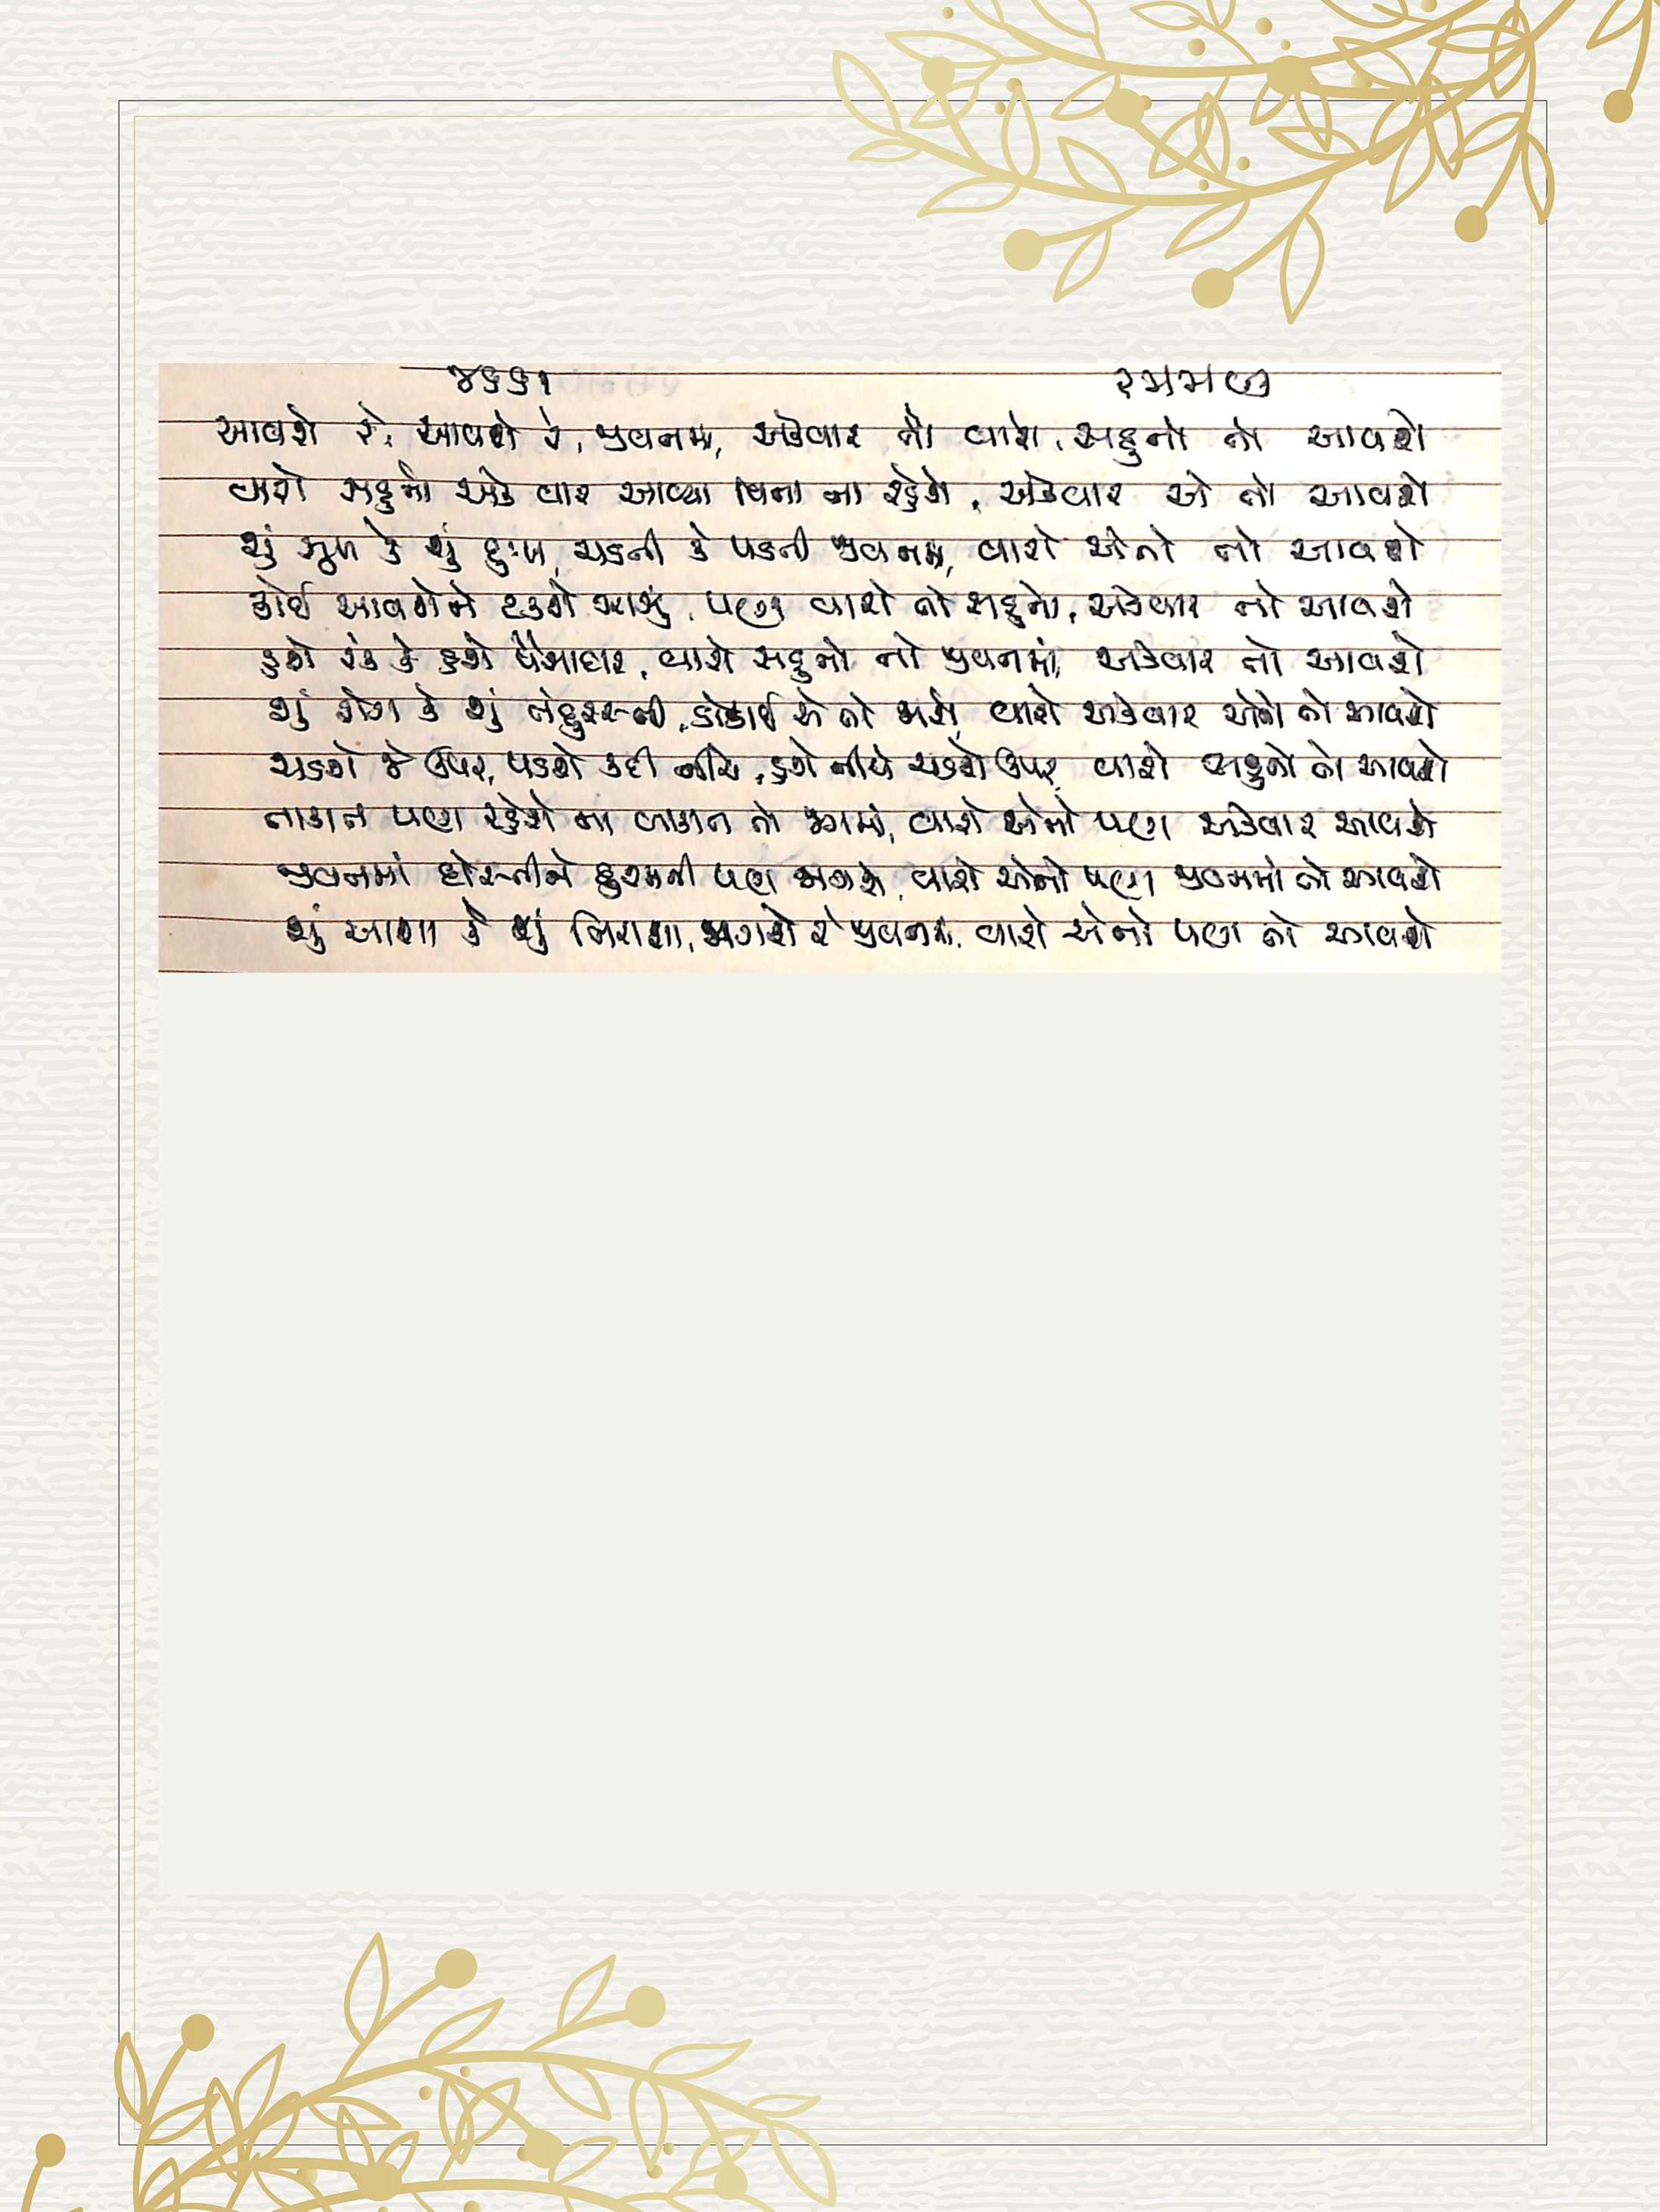 ૪૬૬૧
આવશે રે, આવશે રે, જીવનમાં, એકવાર તો વારો, સહુનો તો આવશે
વારો સહુનો એક વાર આવ્યા વિના ના રહેશે, એકવાર એ તો આવશે
શું સુખ કે શું દુઃખ, ચડતી કે પડતી જીવનમાં, વારો એનો તો આવશે
કોઈ આવશેને ટકશે ઝાઝું, પણ વારો તો સહુનો, એકવાર તો આવશે
હશે રંક કે હશે પૈસાદાર, વારો સહુનો તો જીવનમાં, એકવાર તો આવશે
શું રોગ કે શું તંદુરસ્તી, એ તો વારો એકવાર એનો તો આવશે
ચડશે જે ઉપર, પડશે કદી નીચે, હશે નીચે ચડશે ઉપર, વારો સહુનો તો આવશે
તોફાન પણ રહેશે ના તોફાન તો વારો એનો પણ એકવાર આવશે
જીવનમાં દોસ્તીને દુશ્મની પણ જાગશે, વારો એનો પણ જીવનમાં તો આવશે
શું આશા કે શું નિરાશા, જાગશે રે જીવનમાં, વારો એનો પણ તો આવશે